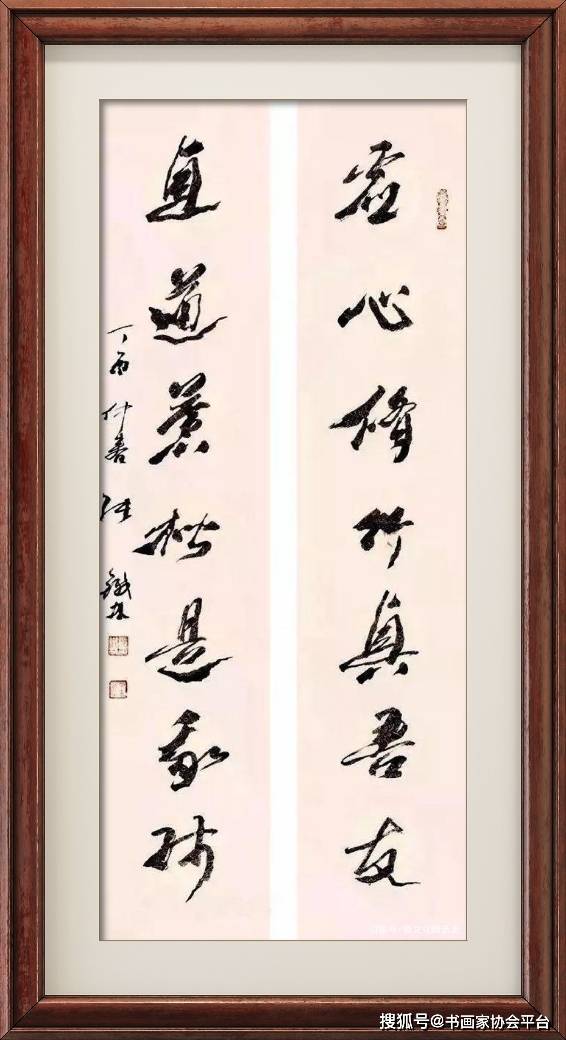 虚心修竹真吾友
直道蒼松是我师
丁酉仲春 张鐵林
搜狐号@书画家协会平台